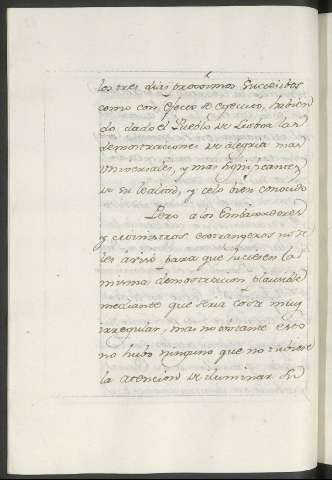 los tres dias proximos succesibos
como con efecto se egecutò, habien
do dado el Pueblo de Lisboa las
demostraciones de alegria mas
universales, y mas significantes
de su lealtad, y celo bien conocido
Pero a los Embaxadores
y Ministros extrangeros no se
les avisò para que hiciesen la
misma demostracion plausible
mediante que seria cosa muy
irregular, mas no obstante esto
no hubo ninguno que no tubiese
la atencion de iluminar su